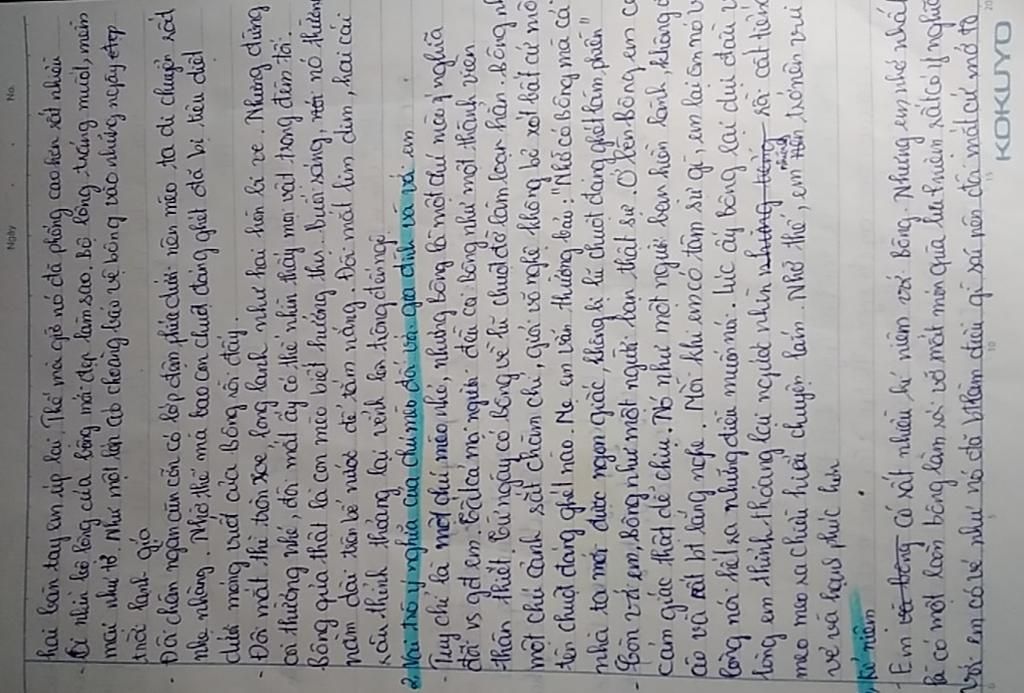 Ngày No.
hai bàn tay em úp lại. Thế mà giờ nó đã phỏng cao hơn rất nhiều
- Cứ nhìn bộ lông của bông mới đẹp làm sao. Bộ lông trắng muốt, mềm
mại như tơ. Như một lớp áo choàng bảo vệ bông vào những ngày
trời lạnh giá
- Đôi chân ngắn cũn cỡn có lớp đệm phía dưới nên mèo ta di chuyển rất
nhẹ nhàng. Nhờ thế mà bao con chuột đáng ghét đã bị tiêu diệt
dưới móng vuốt của bông rồi đấy.
- Đôi mắt thì tròn xoe long lanh như hai hòn bi ve. Nhưng đừng
coi thường nhé, đôi mắt ấy có thể nhìn thấy mọi vật trong đêm tối.
Bông quả thật là con mèo biết hưởng thụ. buổi sáng, nó thường
nằm dài trên bể nước để tắm nắng. Đôi mắt lim dim, hai cái
râu thỉnh thoảng lại vểnh lên trông đến ngộ
2. Vai trò ý nghĩa của chú mèo đối với gia đình và với em
- Tuy chỉ là một chú mèo nhỏ, nhưng bông là một chú mèo ý nghĩa
đối vs gđ em. Tất cả mọi người đều coi bông như một thành viên
thân thiết. Từ ngày có bông về lũ chuột đỡ làm loạn hẳn. bông như
một chú cảnh sát chăm chỉ, giỏi võ nghệ không bỏ xót bất cứ một
tên chuột đáng ghét nào. Mẹ em vẫn thường bảo: "Nhờ có bông mà cả
nhà ta mới được ngon giấc, không bị lũ chuột đáng ghét làm phiền"
- Còn với em, bông như một người bạn thật sự. Ở bên bông, em có
cảm giác thật dễ chịu. Nó như một người bạn hiền lành, không ồn
ào và rất bt lắng nghe. Mỗi khi em có tâm sự gì, em lại ôm nó vào
lòng nói hết ra những điều muốn nói. Lúc ấy bông lại dụi đầu vào
lòng em thỉnh thoảng lại ngước nhìn rồi cất tiếng
meo meo ra chiều hiểu chuyện lắm. Nhờ thế, em mình trở nên vui
vẻ và hạnh phúc hơn
Kỉ niệm
- Em có rất nhiều kỉ niệm với bông. Nhưng em nhớ nhất
là có một lần bông làm rơi vỡ mất món quà lưu niệm rất có ý nghĩa
với em có vẻ như nó đã bt làm điều gì sai nên đôi mắt cứ mở to
KOKUYO